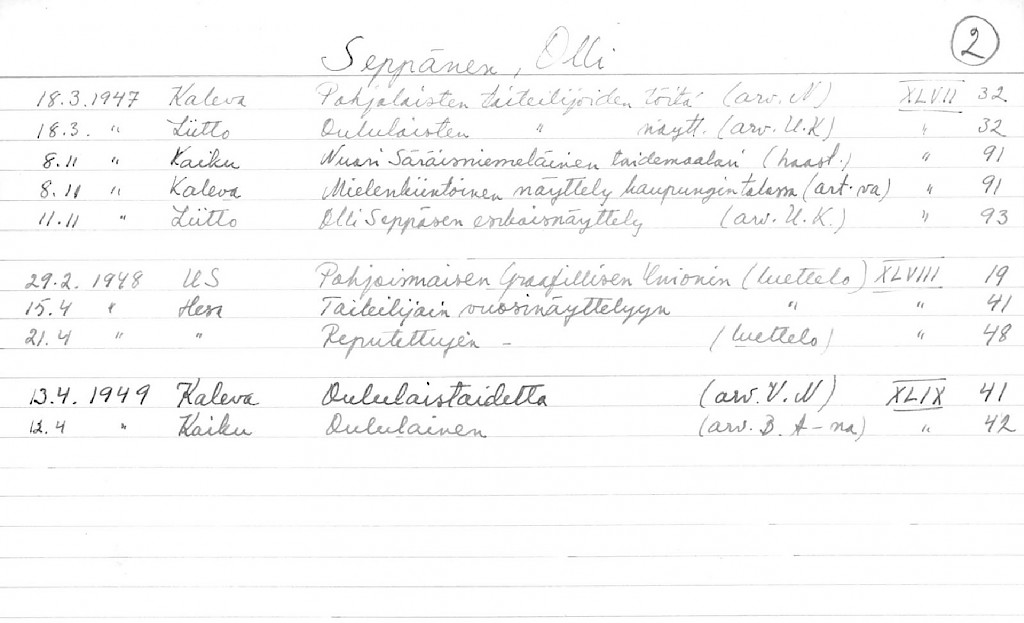 2
Seppänen, Olli
18.3.1947 Kaleva Pohjalaisten taiteilijoiden töitä (arv. N) XLVII 32
18.3. " Liitto Oululaisten " näytt. (arv. U.K) " 32
8.11 " Kaiku Nuori Säräisniemeläinen taidemaalari (haast.) " 91
8.11 " Kaleva Mielenkiintoinen näyttely kaupungintalossa (art. va) " 91
11.11 " Liitto Olli Seppäsen esikoisnäyttely (arv. U.K.) " 93
29.2. 1948 US Pohjoismaisen Graafillisen Unionin (luettelo) XLVIII 19
15.4 " Hesa Taiteilijain vuosinäyttelyyn " " 41
21.4 " " Reputettujen - (luettelo) " 48
13.4. 1949 Kaleva Oululaistaidetta (arv. V.N) XLIX 41
12.4 " Kaiku Oululainen (arv. B. A-na) " 42